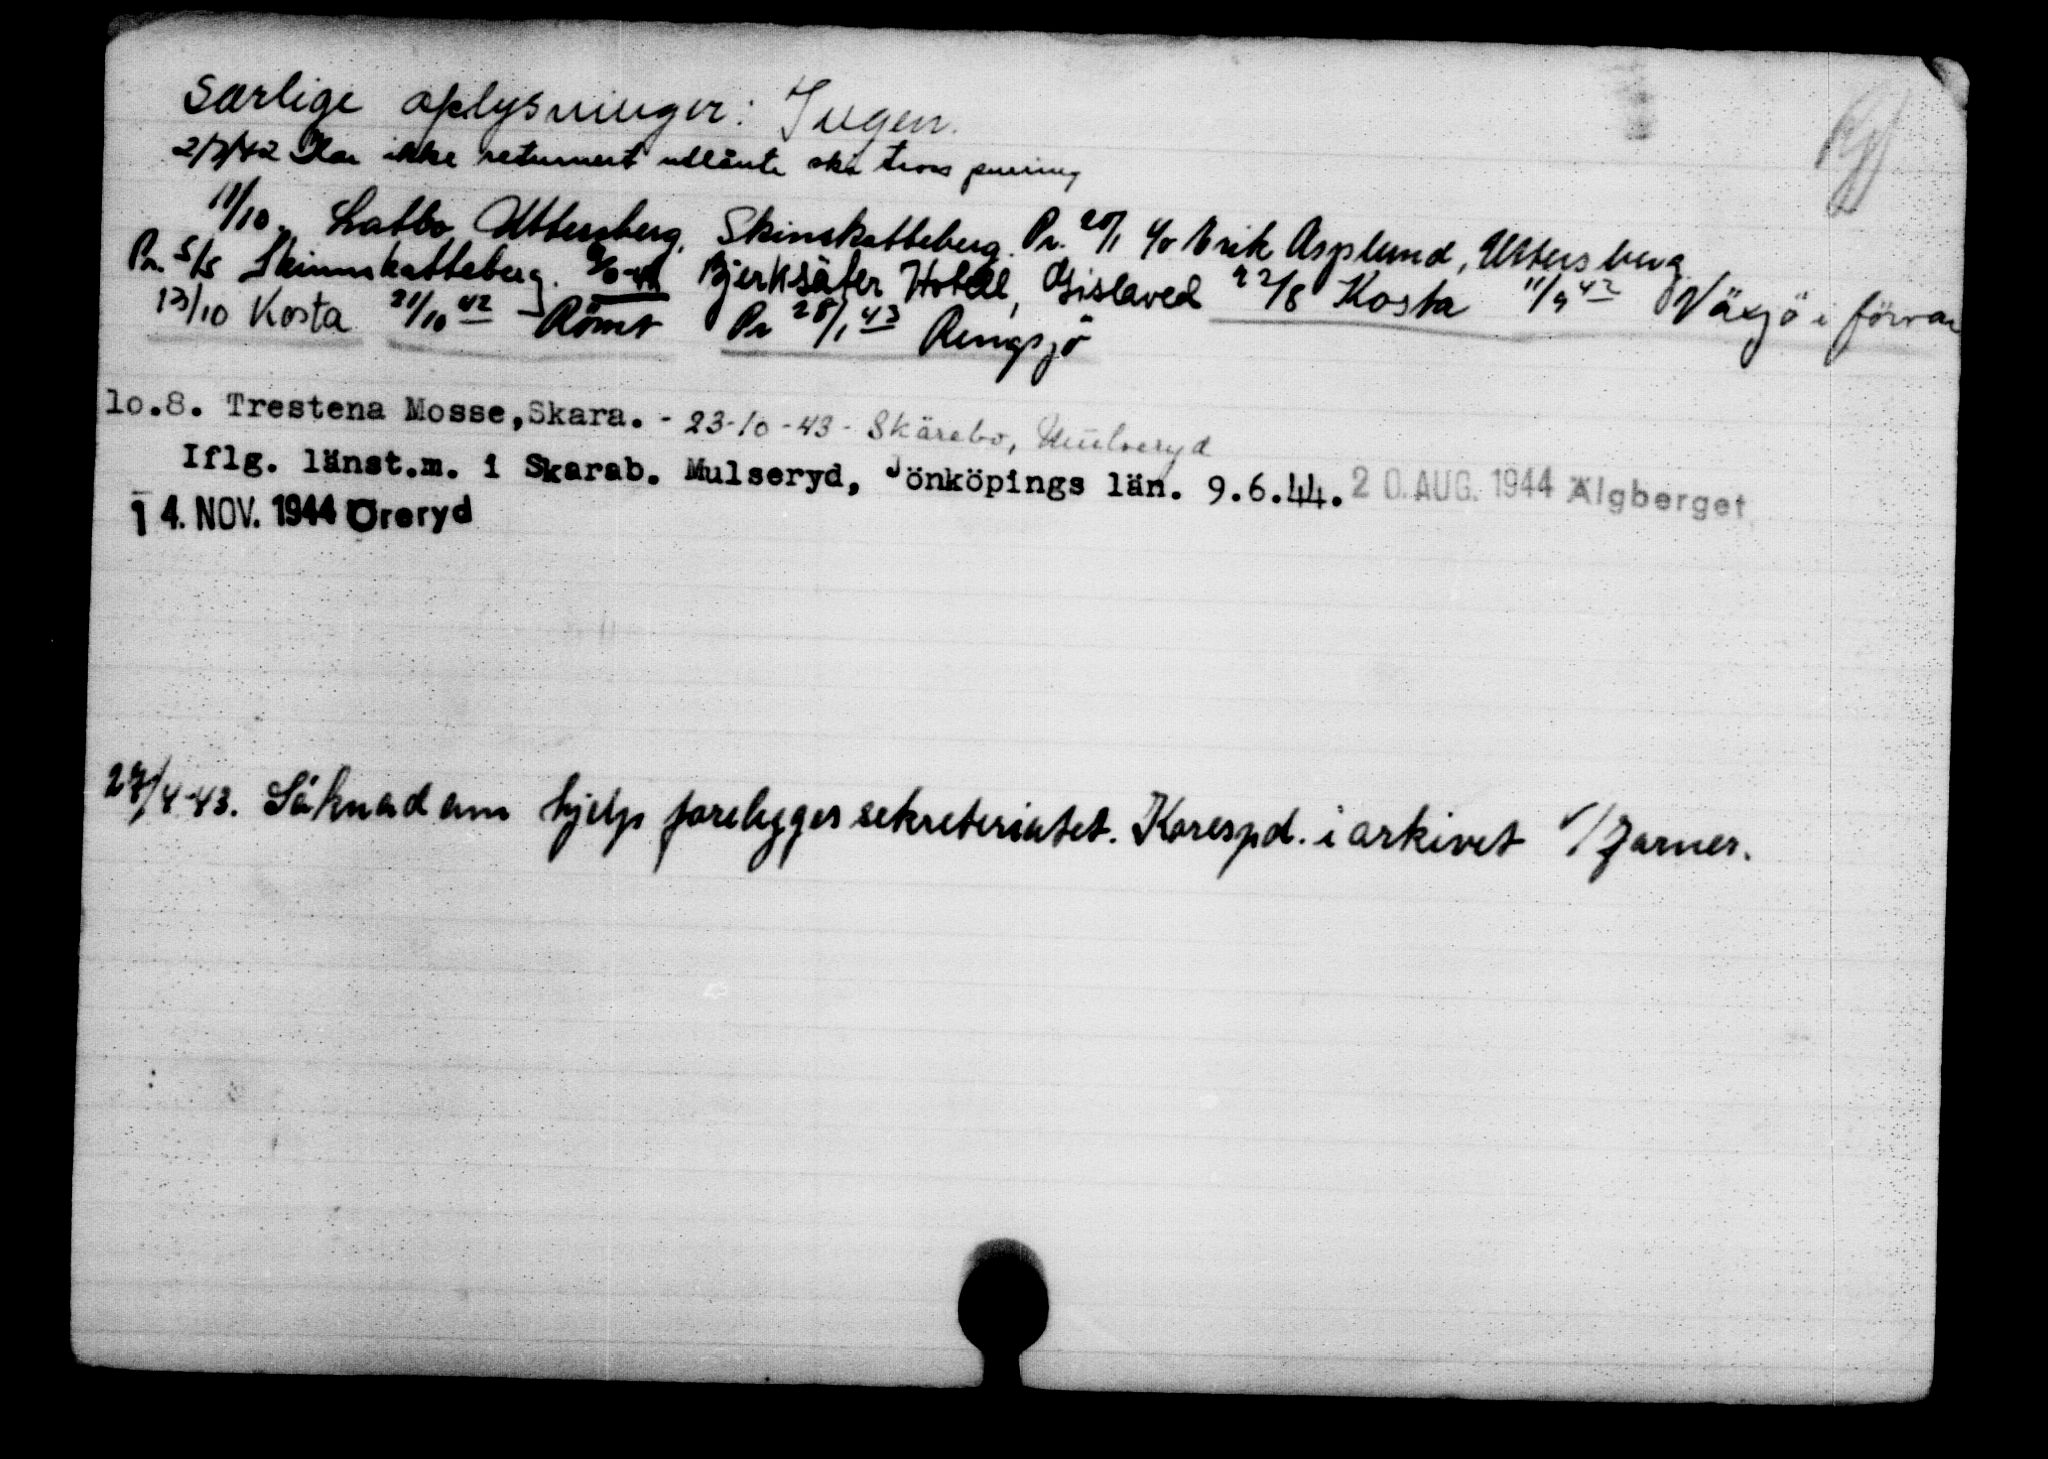 Særlige oplysninger: Ingen.
2/7/42 Har ikke returnert utlånte ski tross purring
11/10. Latbo, Uttersberg, Skinskatteberg. Pr. 20/1 c/o Erik Asplund, Uttersberg
Pr. 5/5 Skinnskatteberg. Bjerksäter Hotell, Gislaved 22/8 Kosta 11/9 42 Växjö i förvar
13/10 Kosta 21/10 42 Römt Pr 28/1 43 Ringsjö
1o.8. Trestena Mosse, Skara. - 23-10-43 - Skärebo, Mulseryd
Iflg. länst.m. i Skarab. Mulseryd, Jönköpings län. 9.6.44. 20. AUG. 1944 Älgberget
14. NOV. 1944 Öreryd
27/4-43. Söknad om hjelp forelegges sekreteriatet. Korespd. i arkivet v/ Jarner.